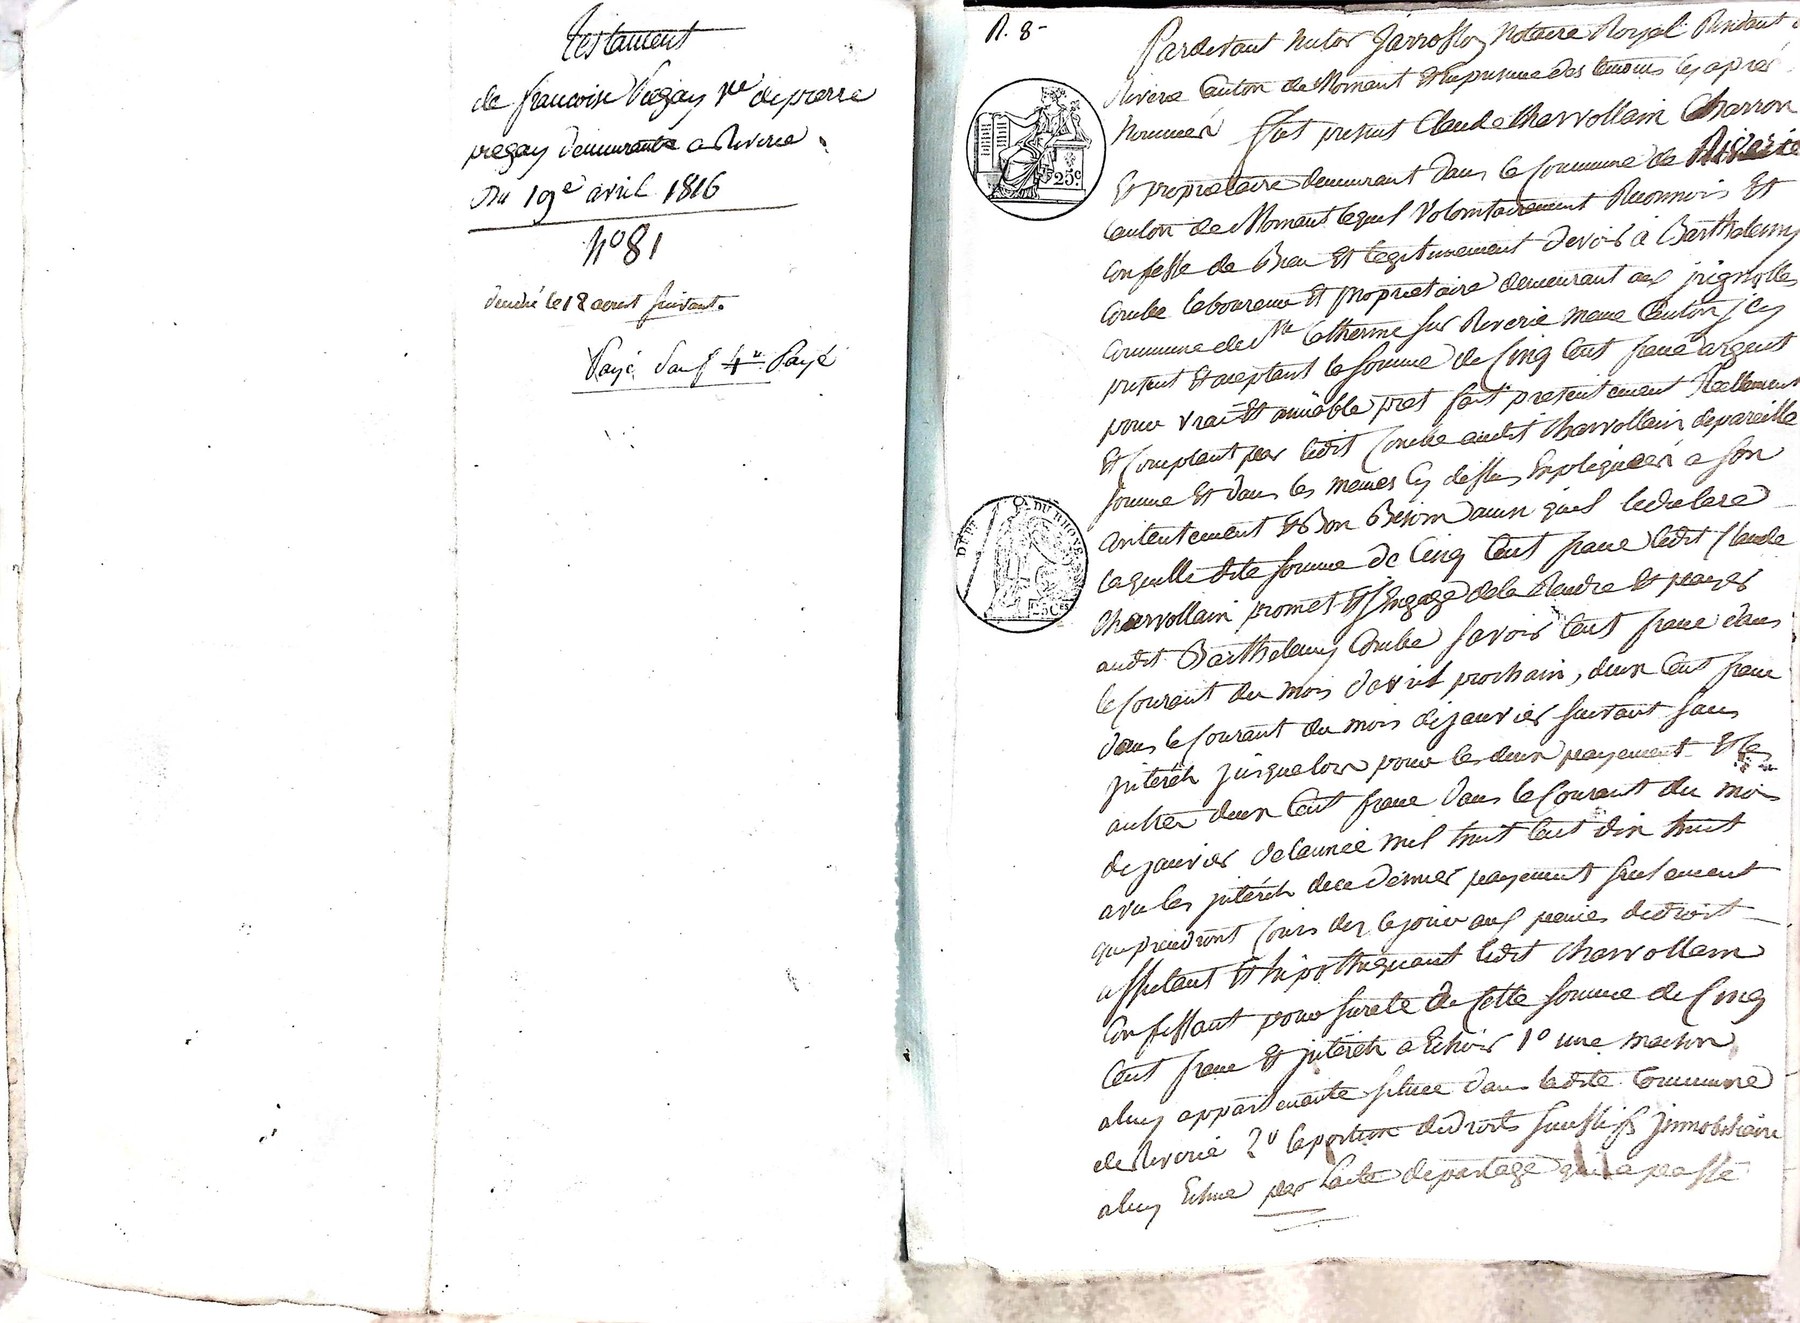 Testament
de francoise Pregay Ve de pierre
pregay demeurante a Riverie
Du 19e avril 1816
No 81
le 18 aoust suivant.
Payé Payé
R. 8-
Pardevant Notaire Royal Residant
Riverie Canton de Mornant Et En presence des temoins cy apres
Nommés fut present Claude Charvollain Charron
Et proprietaire demeurant dans la Commune de Riverie
Canton de Mornant lequel Volontairement Reconnois Et
Confesse de Bien Et legitimement devoir à Barthelemy
Combe laboureur Et proprietaire demeurant aux
Commune de Ste Catherine sur Riverie meme Canton jcy
present Et aceptant la somme de Cinq Cent franc argent
pour vrai Et amiable pret fait presentement Reellement
Et Comptant par ledit Combe audit Charvollain de pareille
somme Et dans les memes Cy dessus Expliquées a son
contentement Et Bon Besoin ainsy quil le declare
laquelle dite somme de Cinq Cent franc ledit Claude
Charvollain promet Et s'Engage de la Rendre Et payer
audit Barthelemy Combe savoir Cent franc dans
le Courant du mois davril prochain, deux Cent franc
dans le Courant du mois de janvier suivant sans
jnterêt jusqualors pour les deux payement Et les
autres deux Cent franc dans le Courant du mois
de janvier de lannée mil huit Cent dix huit
avec les jnterêt de ce dernier payement seulement
qui prendront Cours des le jour aux peines de droit
affectant Et hipothéquant ledit Charvollain
Confessant pour sureté de Cette somme de Cinq
Cent franc Et jnterêt a Echoir 1o une maison
a luy appartenante située dans ladite Commune
de Riverie 2o la portion de droits jmmobiliaire
a luy Echue par lacte de partage qui a passé
25c.
DÉPT DU RHONE
25Ces